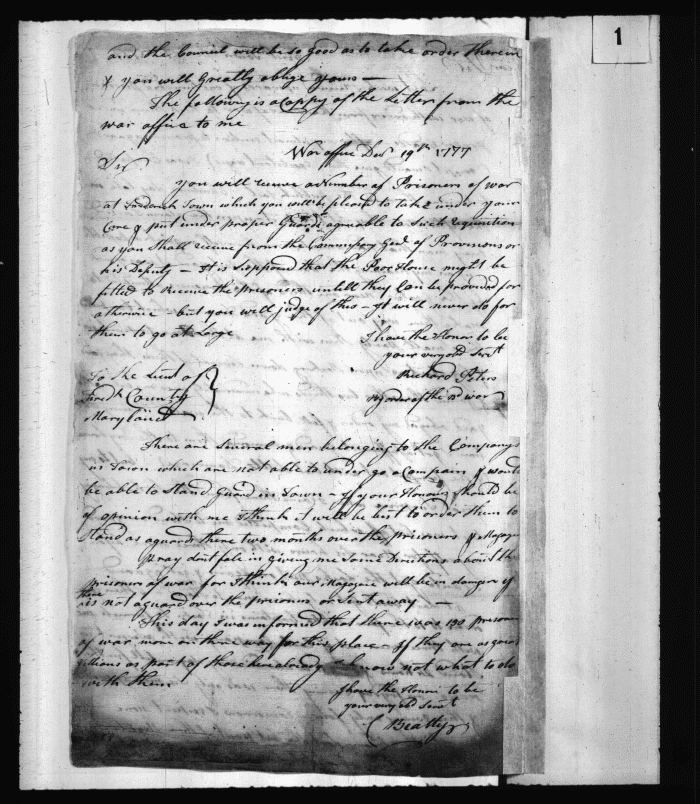 1
and the Council will be so Good as to take order therein
& you will Greatly oblige yours —
The following is a Coppy of the Letter from the
war office to me
War office Decr 19th 1777
Sir
you will receive a Number of Prisoners of war
at Frederick Town which you will be pleased to take under your
Care & put under proper Guards agreable to such requisition
as you Shall receive from the Commissary Genl of Provisions or
his Deputy — It is Supposed that the Poor House might be
fitted to receive the prisoners untill they Can be provided for
otherwise — but you will judge of this — It will never do for
them to go at Large
I have the Honor to be
your very obd Servt
Richard Peters
By order of the Bd war
To the Lieut of
Fredk County
Maryland
There are Several men belonging to the Companys
in Town which are not able to under go a Campain & would
be able to Stand Guard in Town — if your Honour should be
of opinion with me I think it will be best to order them to
Stand as a guard these two months over the prisoners &
pray dont fale in giving me Some Directions about the
prisoners of war for I think our Magazine will be in danger if
there
is not a guard over the prisoners or sent away —
This day I was informed that there was 130 prisoners
of war more on there way for this place — if they are as great
villions as part of those here already I know not what to do
with them
I have the Honour to be
your very obd Servt
C Beatty